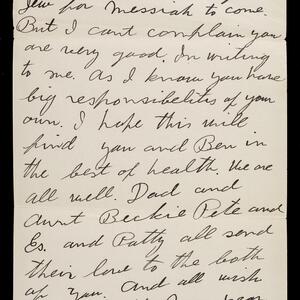 Jew for messiah to come.
But I cant complain you
are very good. In writing
to me. As I know you have
big responsibelitis of your
own. I hope this will
find you and Ben in
the best of health. We are
all well. Dad and
Aunt Beckie Pete and
Es. and Patty all send
their love to the both
of you. And all wish